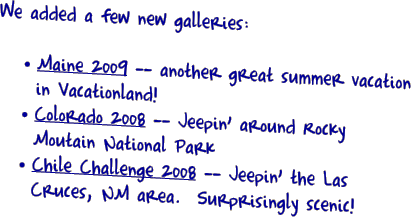 We added a few new galleries:
• Maine 2009 -- another great summer vacation
in Vacationland!
• Colorado 2008 -- Jeepin' around Rocky
Moutain National Park
• Chile Challenge 2008 -- Jeepin' the Las
Cruces, NM area. Surprisingly scenic!